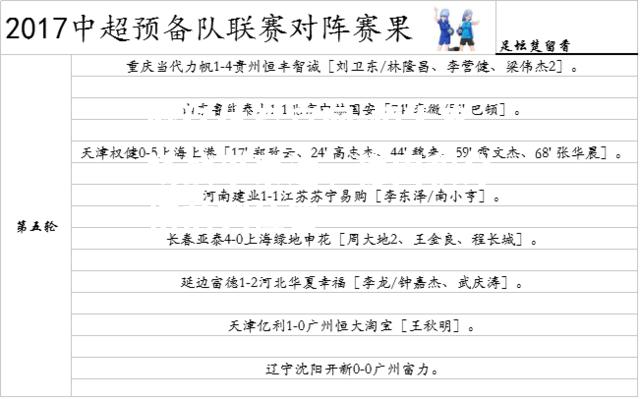 2017中超预备队联赛对阵赛果
足坛楚留香
第五轮
重庆当代力帆1-4贵州恒丰智诚［刘卫东/林隆昌、李营健、梁伟杰2］。
山东鲁能泰山1-1北京中赫国安
巴顿］。
天津权健0-5上海上港［17'
24' 高志杰、44' 魏来、59' 雷文杰、68' 张华晨］。
河南建业1-1江苏苏宁易购［李东泽/南小亨］。
长春亚泰4-0上海绿地申花［周大地2、王金良、程长城］。
延边富德1-2河北华夏幸福［李龙/钟嘉杰、武庆涛］。
天津亿利1-0广州恒大淘宝［王秋明］。
辽宁沈阳开新0-0广州富力。